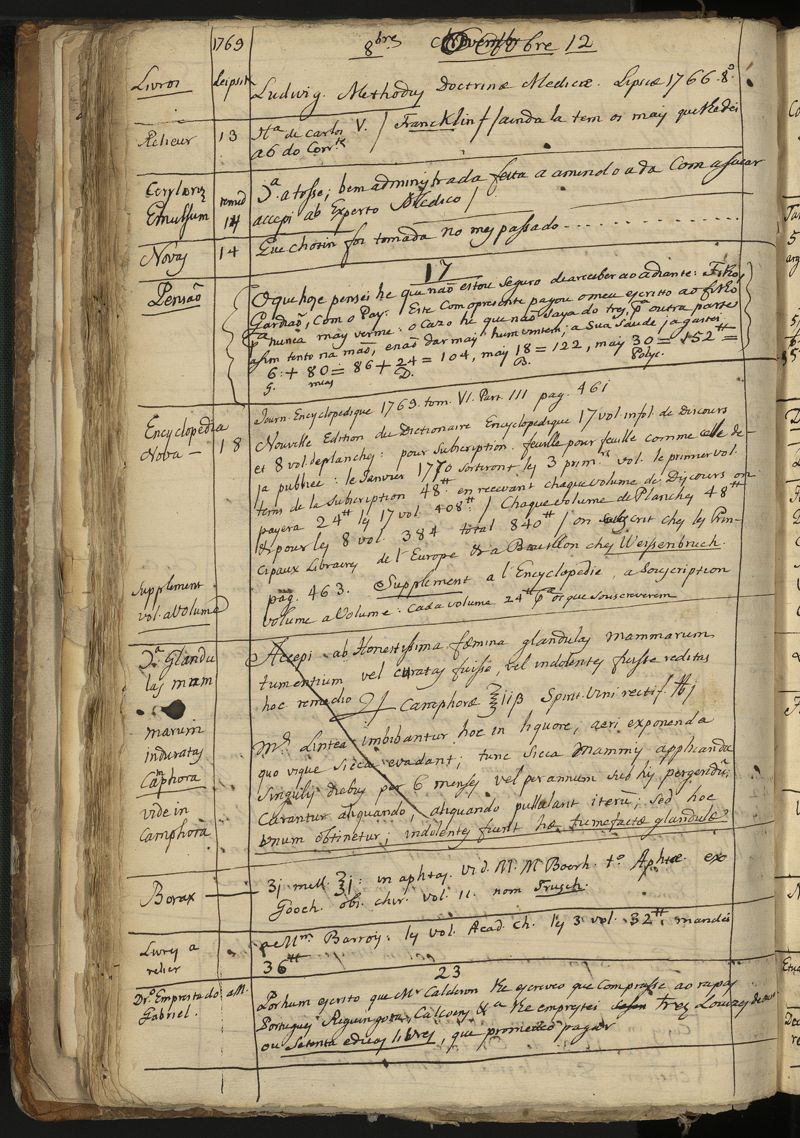 1769 8bre Octobre 12
Livros Leipsik Ludwig. Methodus Doctrinæ Medicæ. Lipsiæ 1766. 8.º
Acheter 13 Hª de Carlos V. / Francklin / ainda la tem os mais que lhe dei
a 6 do Corrte
14 Pª a tosse; bem administrada feita a amendoada com assucar
Emulsum accepi ab Experto Medico /
Novas 14 Que chotin foi tomada no mes passado
17
Pensaõ O que hoje pensei he que naõ estou seguro de receber ao adiante: Filho
Gardaõ, Com o Pay. Este Com o presente payou o meu escritto ao filho
pª nunca mays verme: o cazo he que naõ saya do trez, pª outra parte
afim tento na maõ, e naõ dar mays hum vintem; a sua saude ja gastei
6. + 80 = 86 + 24 = 104, mays 18 = 122, mays 30 = 152 tt =
G. mays D. B. Polyc.
Journ. Encyclopedique 1769. tom. VI. Part III pag. 461
Encyclopedia Nouvelle Edition du Dictionaire Encyclopedique 17 vol infol. de Discours
Nova — 18 et 8 vol. de planches: pour Subscription. feuille pour feuille comme celle de-
ja publiée: le Janvier 1770 sortiront les 3 primrs vol. le primer vol.
tems de la Subscription 48tt. en recevant chaque volume de Discours on
payera 24tt les 17 vol. 408tt. / Chaque volume de Planches 48tt
& pour les 8 vol. 384 total 840tt / on subscrit ches les Prin-
cipaux Libraires de l'Europe & a Bouillon ches Weissenbruch.
Supplement pag. 463. Supplement a l'Encyclopedie a Souscription
vol. a Volume volume a Volume: Cada volume 24tt pª os que Souscreverem
Pª Glandu Accepi ab Honestissima fœmina glandulas mammarum
las mam tumentium vel curatas fuisse, vel indolentes fuisse reditas
hoc remedio ℞ Camphoræ ʒiiβ Spirit. Vini rectif. ℔j
marum Mª. Lintea imbibantur hoc in liquore, aeri exponenda
induratas quo usque sicca evadant; tunc sicca Mammis applicanda
Camphora singulis diebus per 6 menses, vel per annum sub his pergendũ;
vide in Curantur aliquando, aliquando pullulant iterũ; sed hoc
Camphora unum obtinetur; indolentes fiunt hæ tumefactæ glandulæ
Borax ʒj mell. ℥j: in aphtas. vid. M. M Boerh. tº Aphtæ. ex
Gooch. obs. chir. vol. 11. nom Frusch.
Livres a Mm Barrois: les vol. Acad. Ch. les 3 vol. 32tt. mandei
relier 36tt
23
Drº Emprestado a M. Por hum escrito que Mr Calderon lhe escreveo que comprasse ao rapas
Gabriel. Portugues Calcoens &ª lhe emprestei tres Louizes de
ou setenta e duas libres, que prometeo pagar